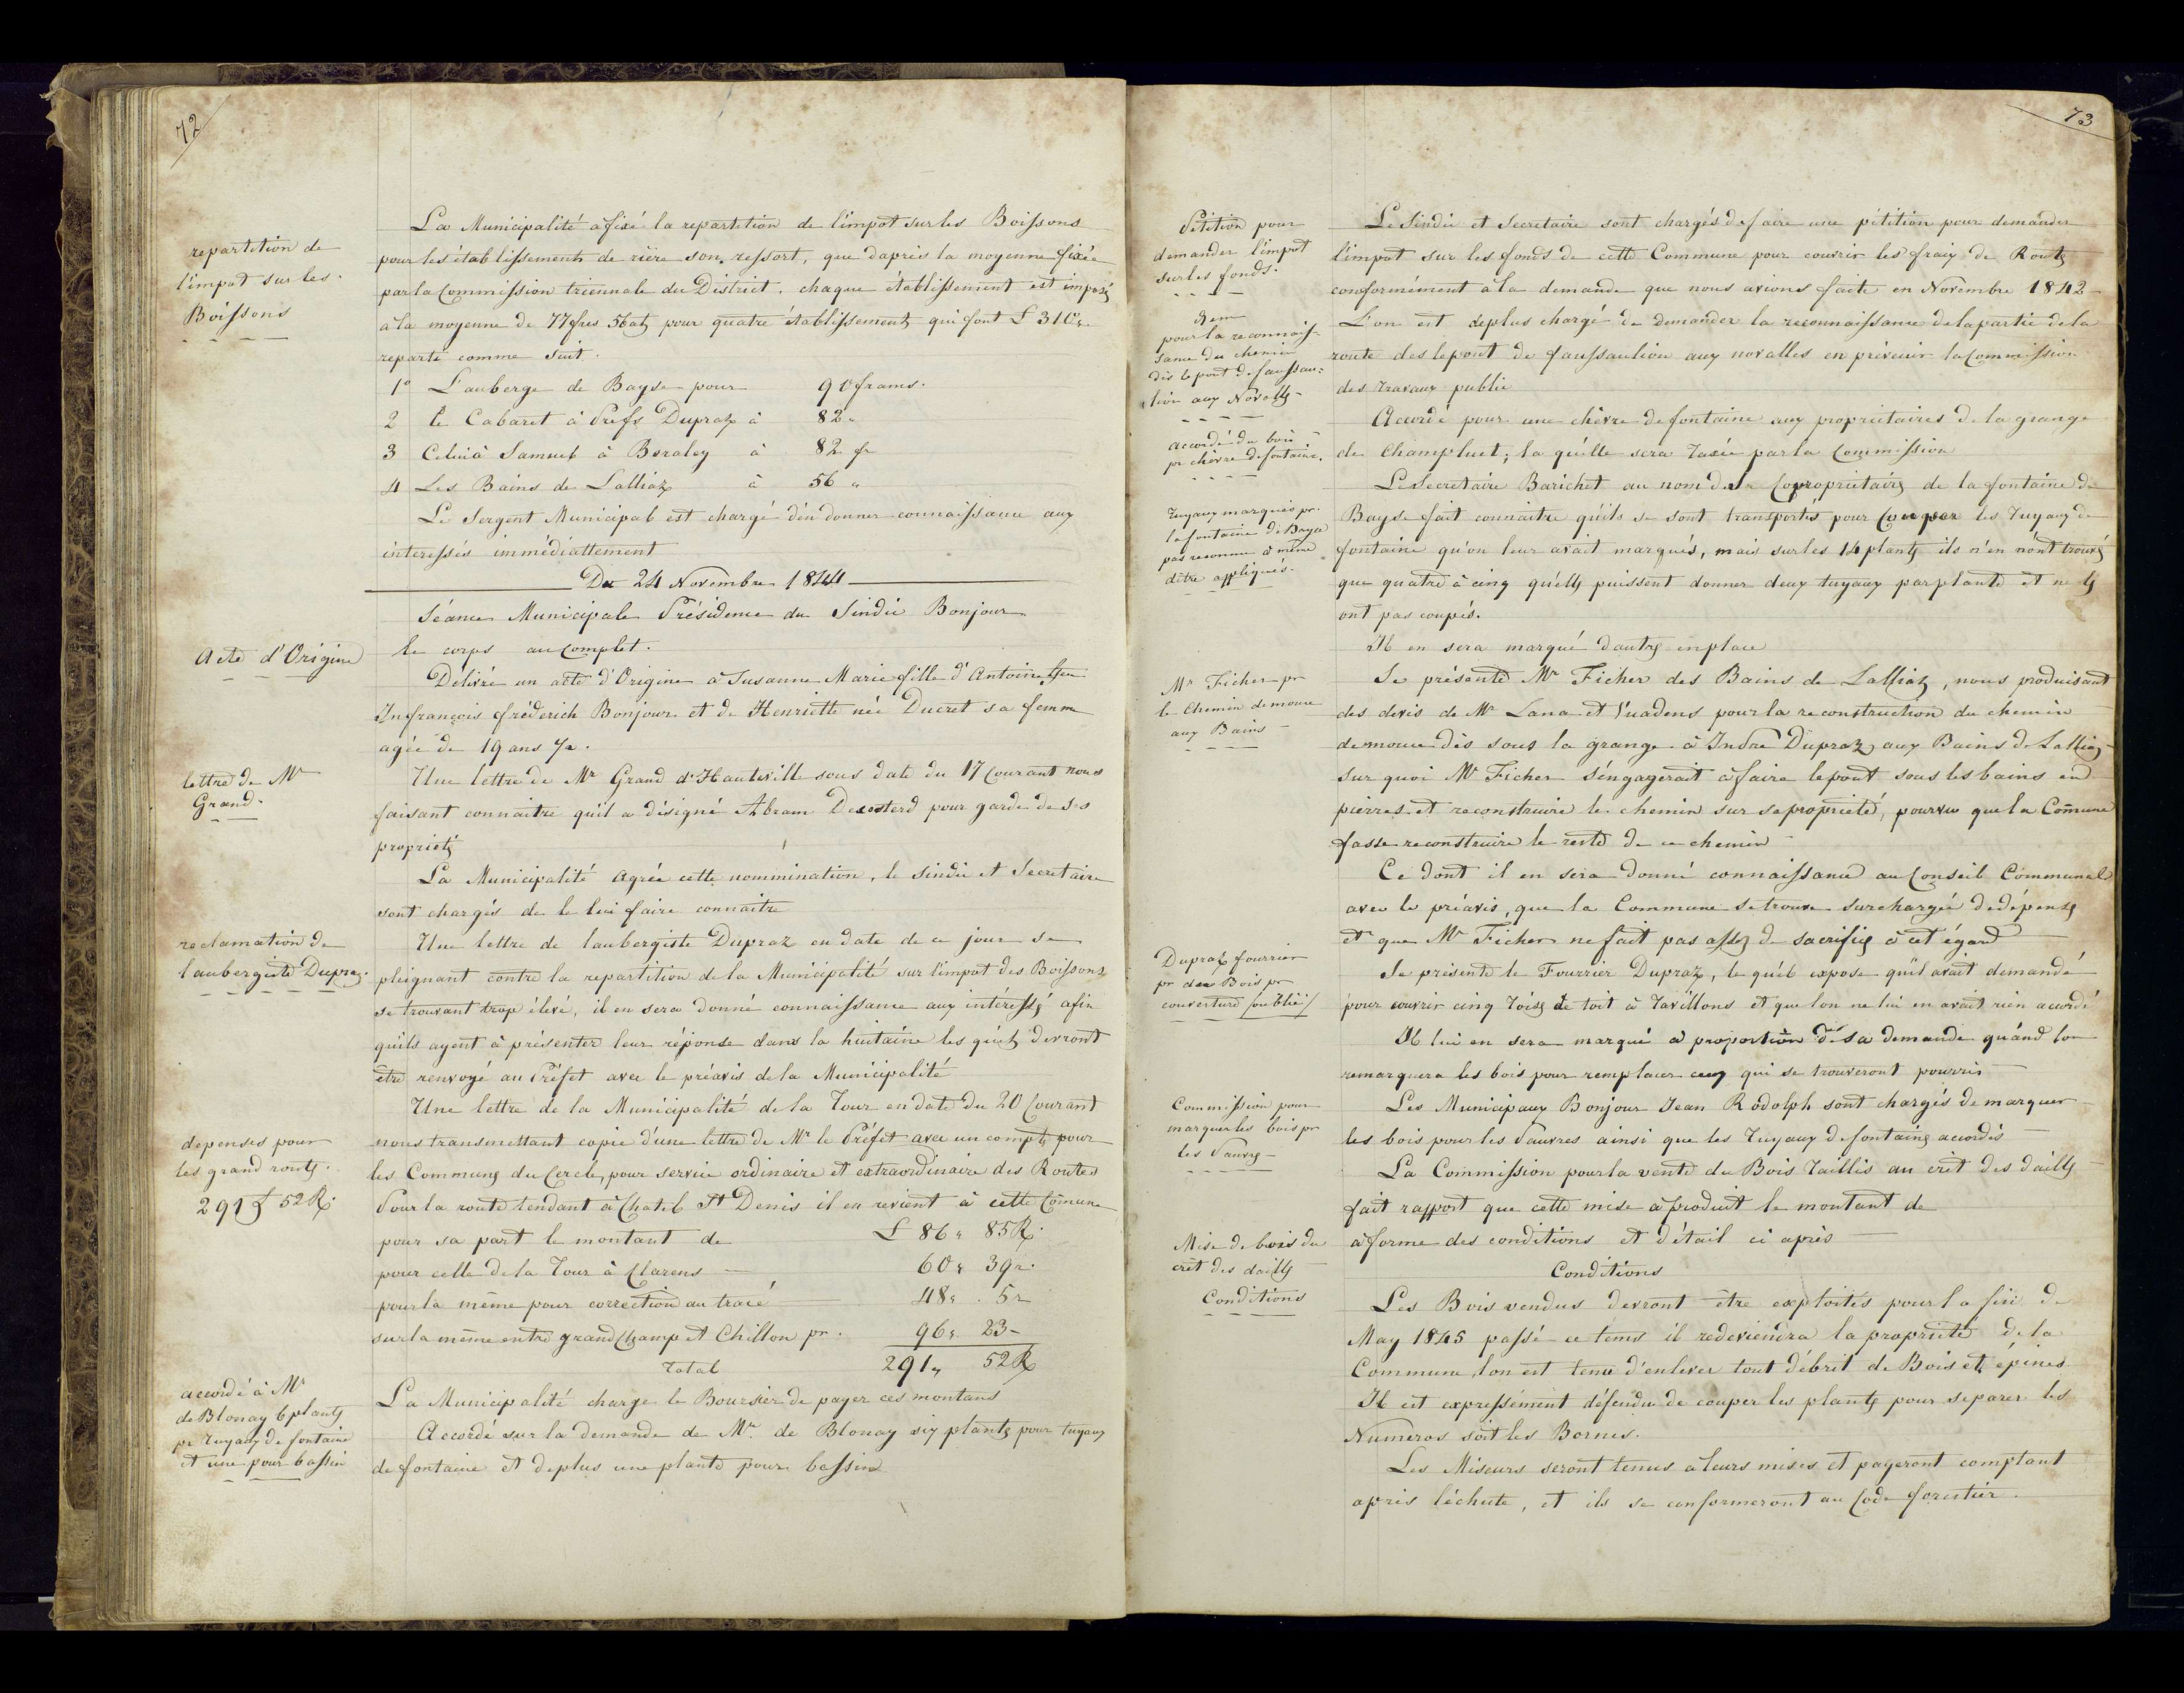 72
repartition de
l'impot sur les
Boissons
La Municipalité a fixé la repartition de l'impot sur les Boissons
pour les établissements de rière son ressort, que daprès la moyenne fixée
par la Commission triennale du District. chaque établissement est imposé
a la moyenne de 77 fres 5 bat pour quatre établissements qui font £ 310 "
reparti comme suit.
1° L'auberge de Bayse pour 90 francs.
2 Le Cabaret à Prefs Dupraz à 82 "
3 Celui à Samuel à Boraley à 82 fr
4 Les Bains de Lalliaz à 56 "
Le Sergent Municipal est chargé d'en donner connaissance aux
interessés immédiattement
Du 24 Novembre 1844
Séance Municipale Présidence du Sindic Bonjour
Acte d'Origine
le corps au Complet.
Délivré un acte d'Origine a Susanne Marie fille d'Antoine feu
Jnfrançois fréderich Bonjour et de Henriette née Ducret sa femme
agée de 19 ans 1/2.
lettre de Mr
Grand.
Une lettre de Mr Grand d'Hauteville sous date du 17 Courant nous
faisant connaitre qu'il a désigné Abram Decosterd pour garde de ses
propriétés
La Municipalité Agrée cette nommination, le Sindic et Sécretaire
sont chargés de le lui faire connaitre
reclamation de
l'aubergiste Dupraz.
Une lettre de l'aubergiste Dupraz en date de ce jour se
pleignant contre la repartition de la Municipalité sur l'impot des Boissons
se trouvant trop élevé, il en sera donné connaissance aux intéressés afin
qu'ils ayent à présenter leur réponse dans la huitaine les quels devront
être renvoyé au Préfet avec le préavis de la Municipalité
depenses pour
les grand routes.
291 £ 52 R.
Une lettre de la Municipalité de la Tour en date du 20 Courant
nous transmettant copie d'une lettre de Mr le Préfet avec un compte pour
les Communes du Cercle, pour service ordinaire et extraordinaire des Routes
Pour la route tendant à Chatel St Denis il en revient à cette Comune
pour sa part le montant de £ 86 " 85 R.
pour celle de la Tour à Clarens 60 " 39 r.
pour la même pour correction au tracé 48 " 5 r
sur la même entre grand Champ et Chillon pr. 96 " 23 -
Total 291 " 52 R
La Municipalité charge le Boursier de payer ces montans
accordé à Mr
de Blonay 6 plantes
pr Tuyaux de fontaine
et une pour bassin
Accordé sur la demande de Mr. de Blonay six plantes pour tuyaux
de fontaine et deplus une plante pour bassin
73
Pétition pour
demander l'impot
sur les fonds.
Le Sindic et Secretaire sont chargés de faire une pétition pour demander
l'impot sur les fonds de cette Commune pour couvrir les fraix de Routes
conformément à la demande que nous avions faite en Novembre 1842
Idem
pour la reconnais-
sance du chemin
dès le pont de faussau-
lion aux Novalles
L'on est deplus chargé de demander la reconnaissance de la partie de la
route des le pont de faussaulion aux novalles en prévenir la Commission
des travaux public
accordé du bois
pr chèvre de fontaine.
Accordé pour une chèvre de fontaine aux proprietaires de la grange
de Champluet; la qu'elle sera Taxée par la Commission
Tuyaux marqués pr.
la fontaine de Bayse
pas reconnu à même
d'être appliqués.
Le Secretaire Barichet au nom des Copropriétaires de la fontaine de
Bayse fait connaitre qu'ils se sont transportés pour Couper les Tuyaux de
fontaine qu'on leur avait marqués, mais sur les 14 plantes ils n'en n'ont trouvés
que quatre à cinq qu'elles puissent donner deux tuyaux par plante et ne les
ont pas coupés.
Il en sera marqué dautres en place
Mr Ficher pr
le Chemin demoux
aux Bains
Se présente Mr Ficher des Bains de Lalliaz, nous produisant
des devis de Mr Lana et Vuadens pour la reconstruction du chemin
demoux dès sous la grange à André Dupraz aux Bains de Lalliaz
sur quoi Mr Ficher s'éngagerait à faire le pont sous les bains en
pierres et reconstruire le chemin sur sa propriété, pourvu que la Comune
fasse reconstruire le reste de ce chemin
Ce dont il en sera donné connaissance au Conseil Communal
avec le préavis, que la Commune se trouve surchargée de dépenses
et que Mr Ficher ne fait pas assez de sacrifices à cet égard
Dupraz fourrier
pr du Bois pr
couverture /oublié/
Se présente le Fourrier Dupraz, le quél expose qu'il avait demandé
pour couvrir cinq Toises de toit à Tavillons et que l'on ne lui en avait rien accordé
Il lui en sera marqué à proportion de sa demande quand l'on
remarquera les bois pour remplacer ceux qui se trouveront pourris
Commission pour
marquer les bois pr
les Pauvres
Les Municipaux Bonjour Jean Rodolph sont chargés de marquer
les bois pour les Pauvres ainsi que les Tuyaux de fontaines accordés
La Commission pour la vente du Bois Taillis au crêt des dailles
fait rapport que cette mise a produit le montant de
Mise de bois du
crêt des dailles
Conditions
à forme des conditions et détail ci après
Conditions
Les Bois vendus devront être exploités pour la fin de
May 1845 passé ce tems il redeviendra la propriété de la
Commune, l'on est tenu d'enlever tout débrit de Bois et épines
Il est expressément défendu de couper les plantes pour separer les
Numeros soit les Bornes.
Les Miseurs seront tenus a leurs mises et payeront comptant
après l'échute, et ils se conformeront au Code forestier.